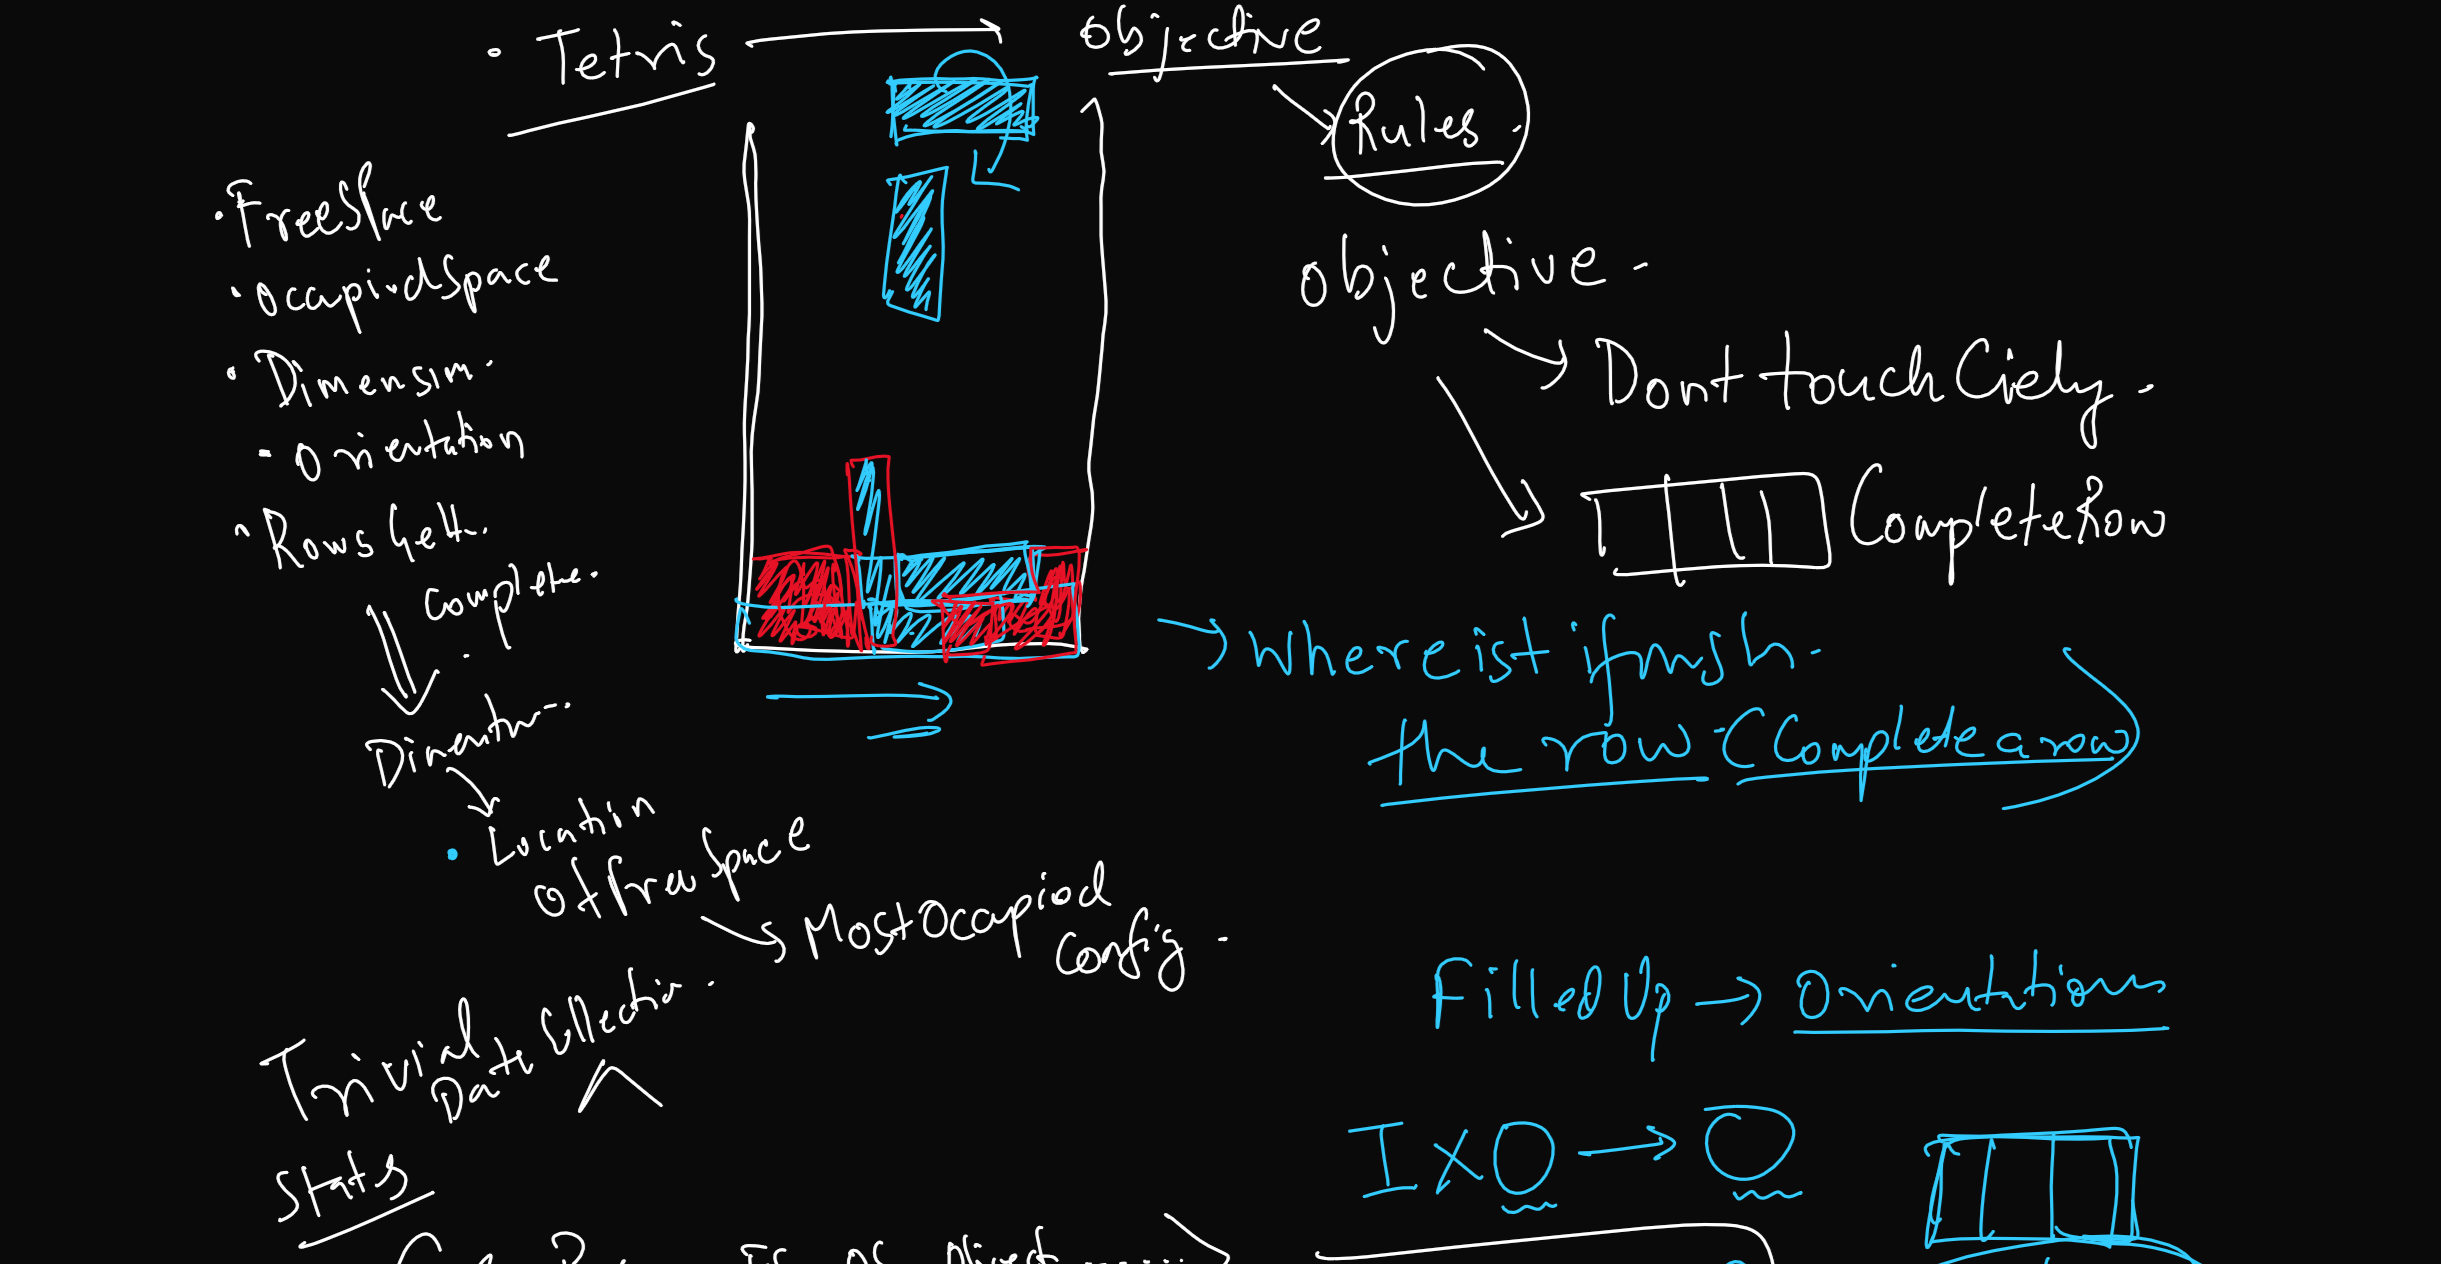 • Tetris → objective
Rules.
• FreeSpace
• OccupiedSpace
• Dimension.
• Orientation
• Rows Gett.
Complete.
• Location
Of free Space
→ Most Occupied
Config.
Trivial
Data Collection.
States
objective.
→ Dont touch Ciely.
Complete Row
→ Where ist ifinish.
the row (Complete a row)
Filled Up → Orientations
I X O → O